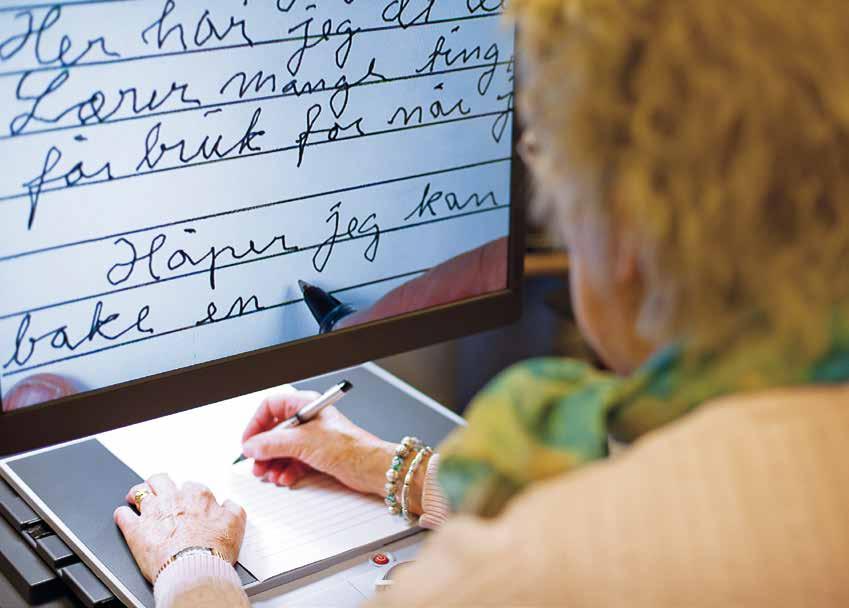 Her har jeg de
Lærer mange ting
får bruk for når j
Håper jeg kan
bake en